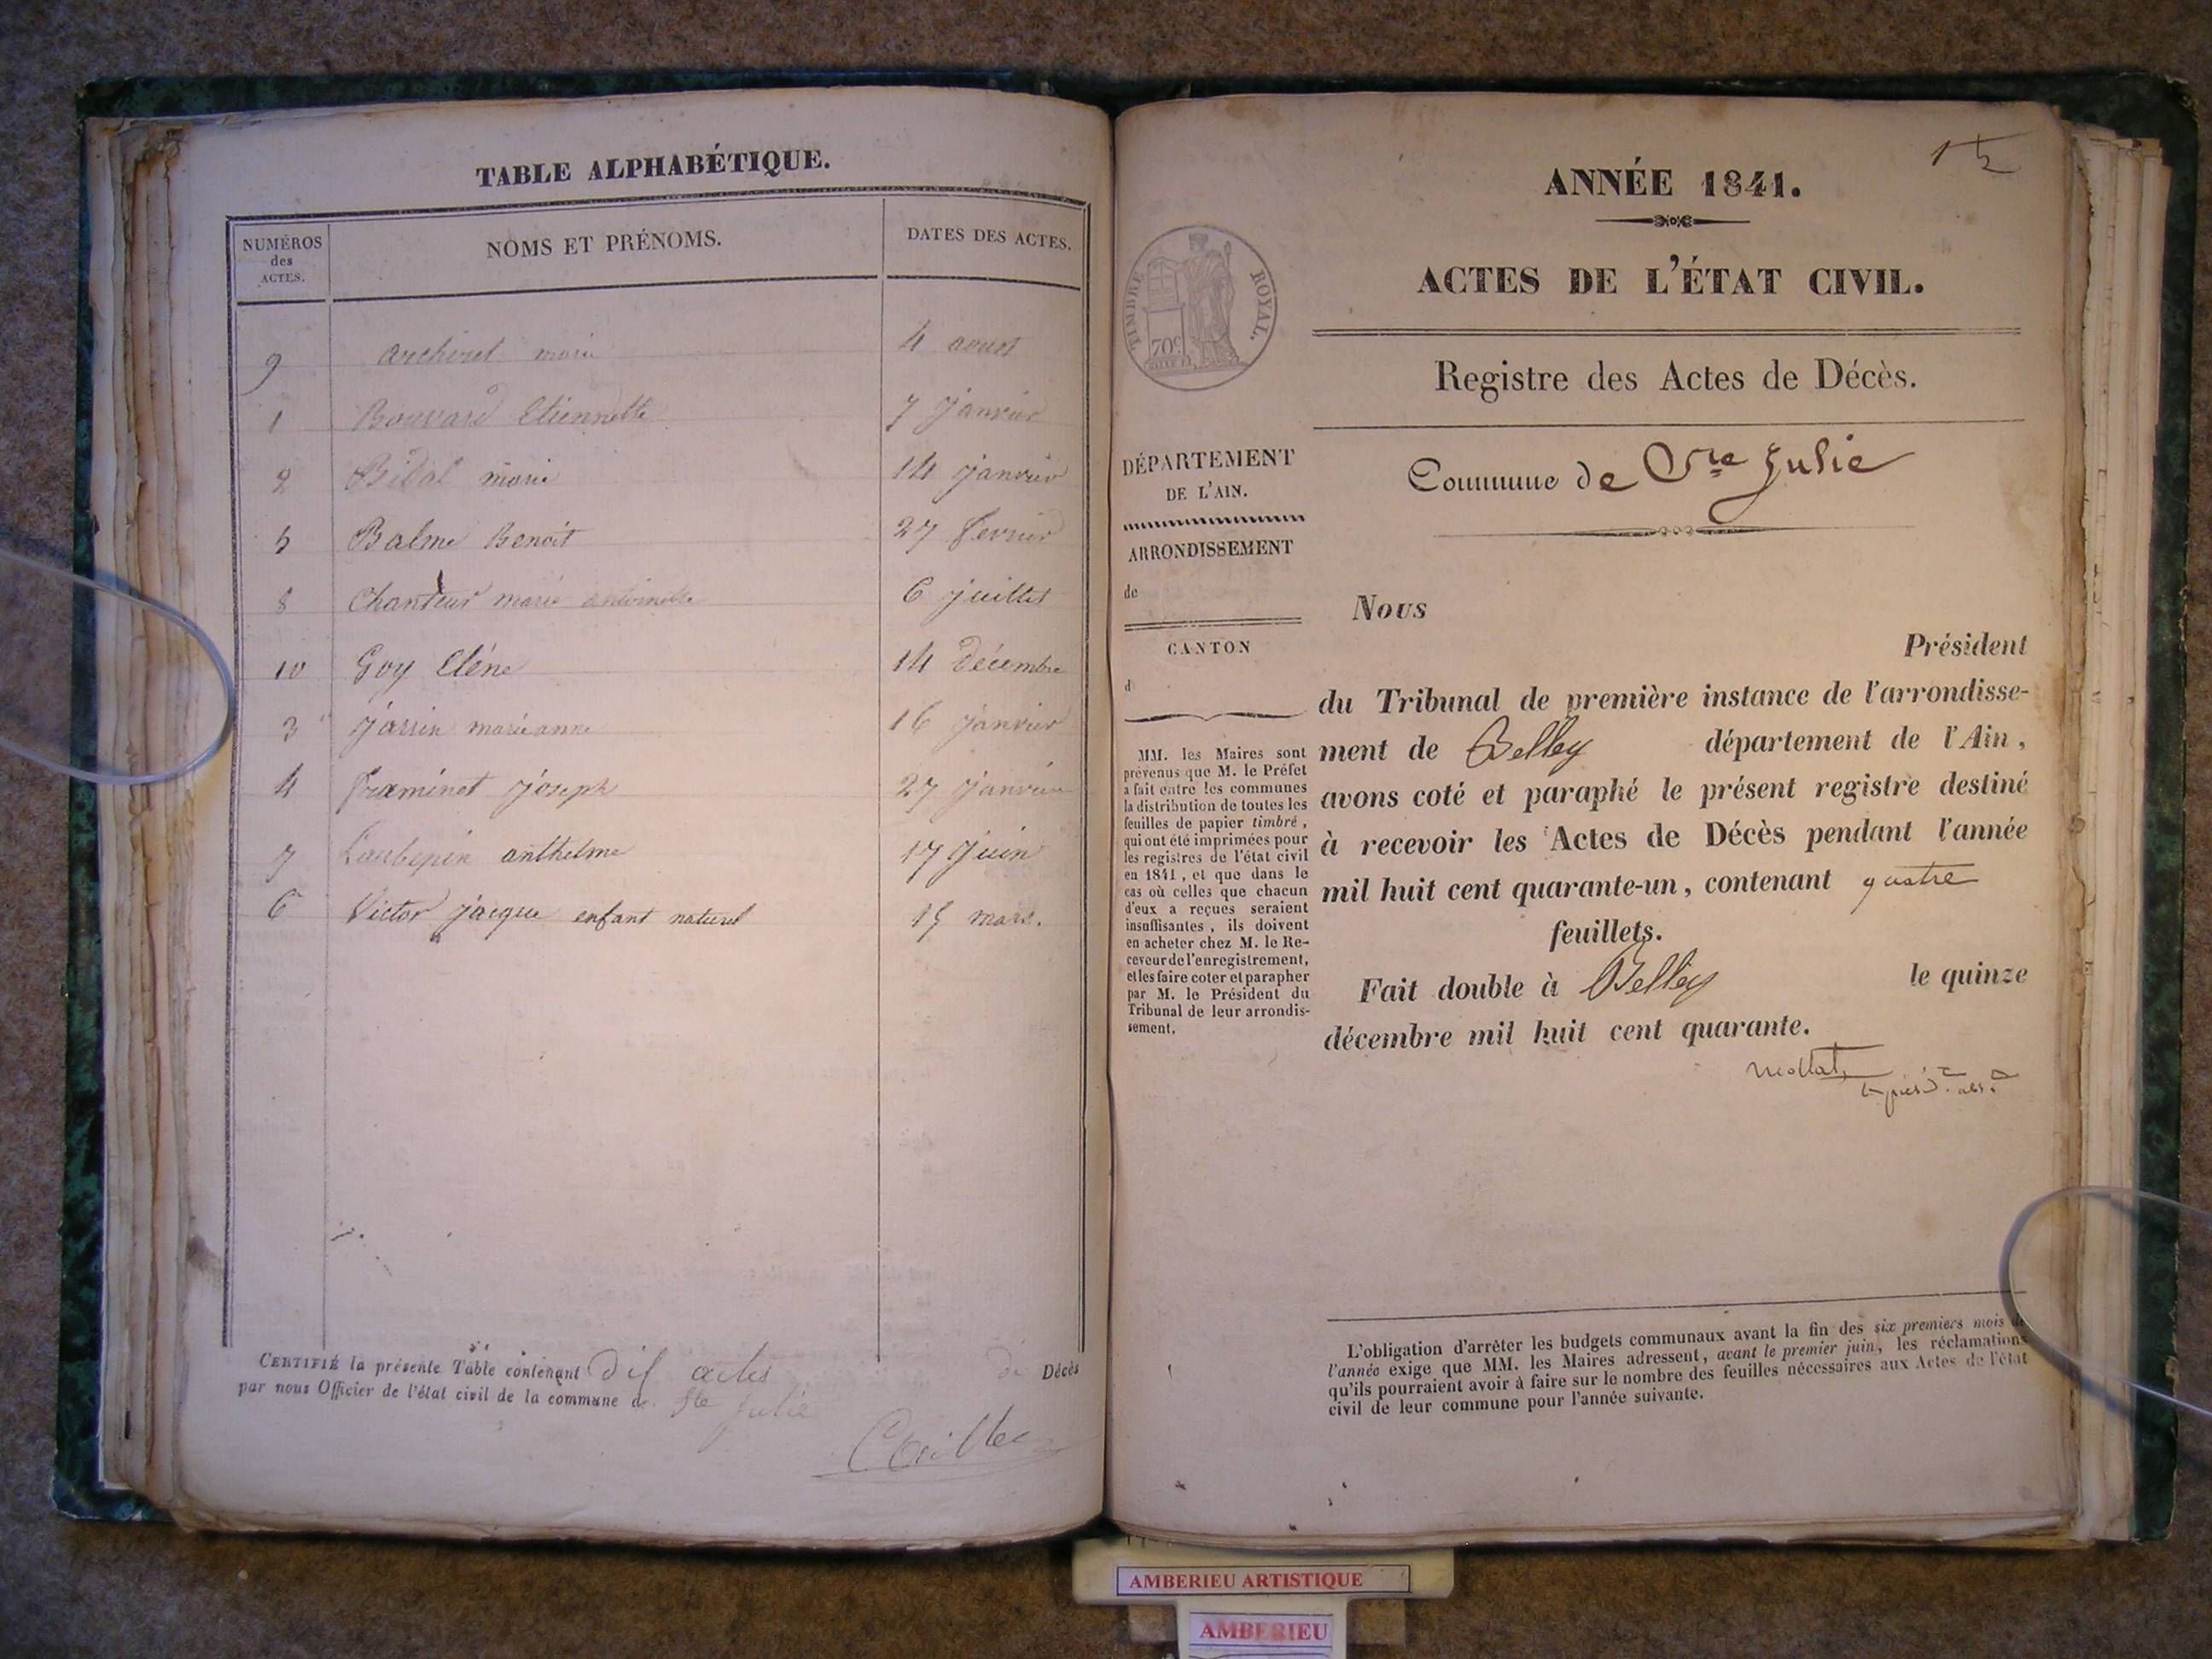 TABLE ALPHABÉTIQUE.
NUMÉROS des ACTES. NOMS ET PRÉNOMS. DATES DES ACTES.
9 archeret marie 4 aoust
1 Bouvard Etiennette 7 Janvier
2 Bidal marie 14 janvier
5 Balme Benoit 27 fevrier
8 Chanteur marie antoinette 6 juillet
10 Goy Eléne 14 Décembre
3 Jassin marieanne 16 Janvier
4 Framinet joseph 27 Janvier
7 Laubepin anthelme 17 Juin
6 Victor jacque enfant naturel 15 mars.
CERTIFIÉ la présente Table contenant dix actes de Décès
par nous Officier de l'état civil de la commune de Ste Julie
1/2
ANNÉE 1841.
ACTES DE L'ÉTAT CIVIL.
TIMBRE ROYAL.
70c
Registre des Actes de Décès.
Commune de Ste Julie
DÉPARTEMENT
DE L'AIN.
ARRONDISSEMENT
de
CANTON
d
MM. les Maires sont
prévenus que M. le Préfet
a fait entre les communes
la distribution de toutes les
feuilles de papier timbré,
qui ont été imprimées pour
les registres de l'état civil
en 1841, et que dans le
cas où celles que chacun
d'eux a reçues seraient
insuffisantes, ils doivent
en acheter chez M. le Re-
ceveur de l'enregistrement,
et les faire coter et parapher
par M. le Président du
Tribunal de leur arrondis-
sement.
Nous
Président
du Tribunal de première instance de l'arrondisse-
ment de Belley département de l'Ain,
avons coté et paraphé le présent registre destiné
à recevoir les Actes de Décès pendant l'année
mil huit cent quarante-un, contenant quatre
feuillets.
Fait double à Belley le quinze
décembre mil huit cent quarante.
L'obligation d'arrêter les budgets communaux avant la fin des six premiers mois de
l'année exige que MM. les Maires adressent, avant le premier juin, les réclamations
qu'ils pourraient avoir à faire sur le nombre des feuilles nécessaires aux Actes de l'état
civil de leur commune pour l'année suivante.
AMBERIEU ARTISTIQUE
AMBERIEU